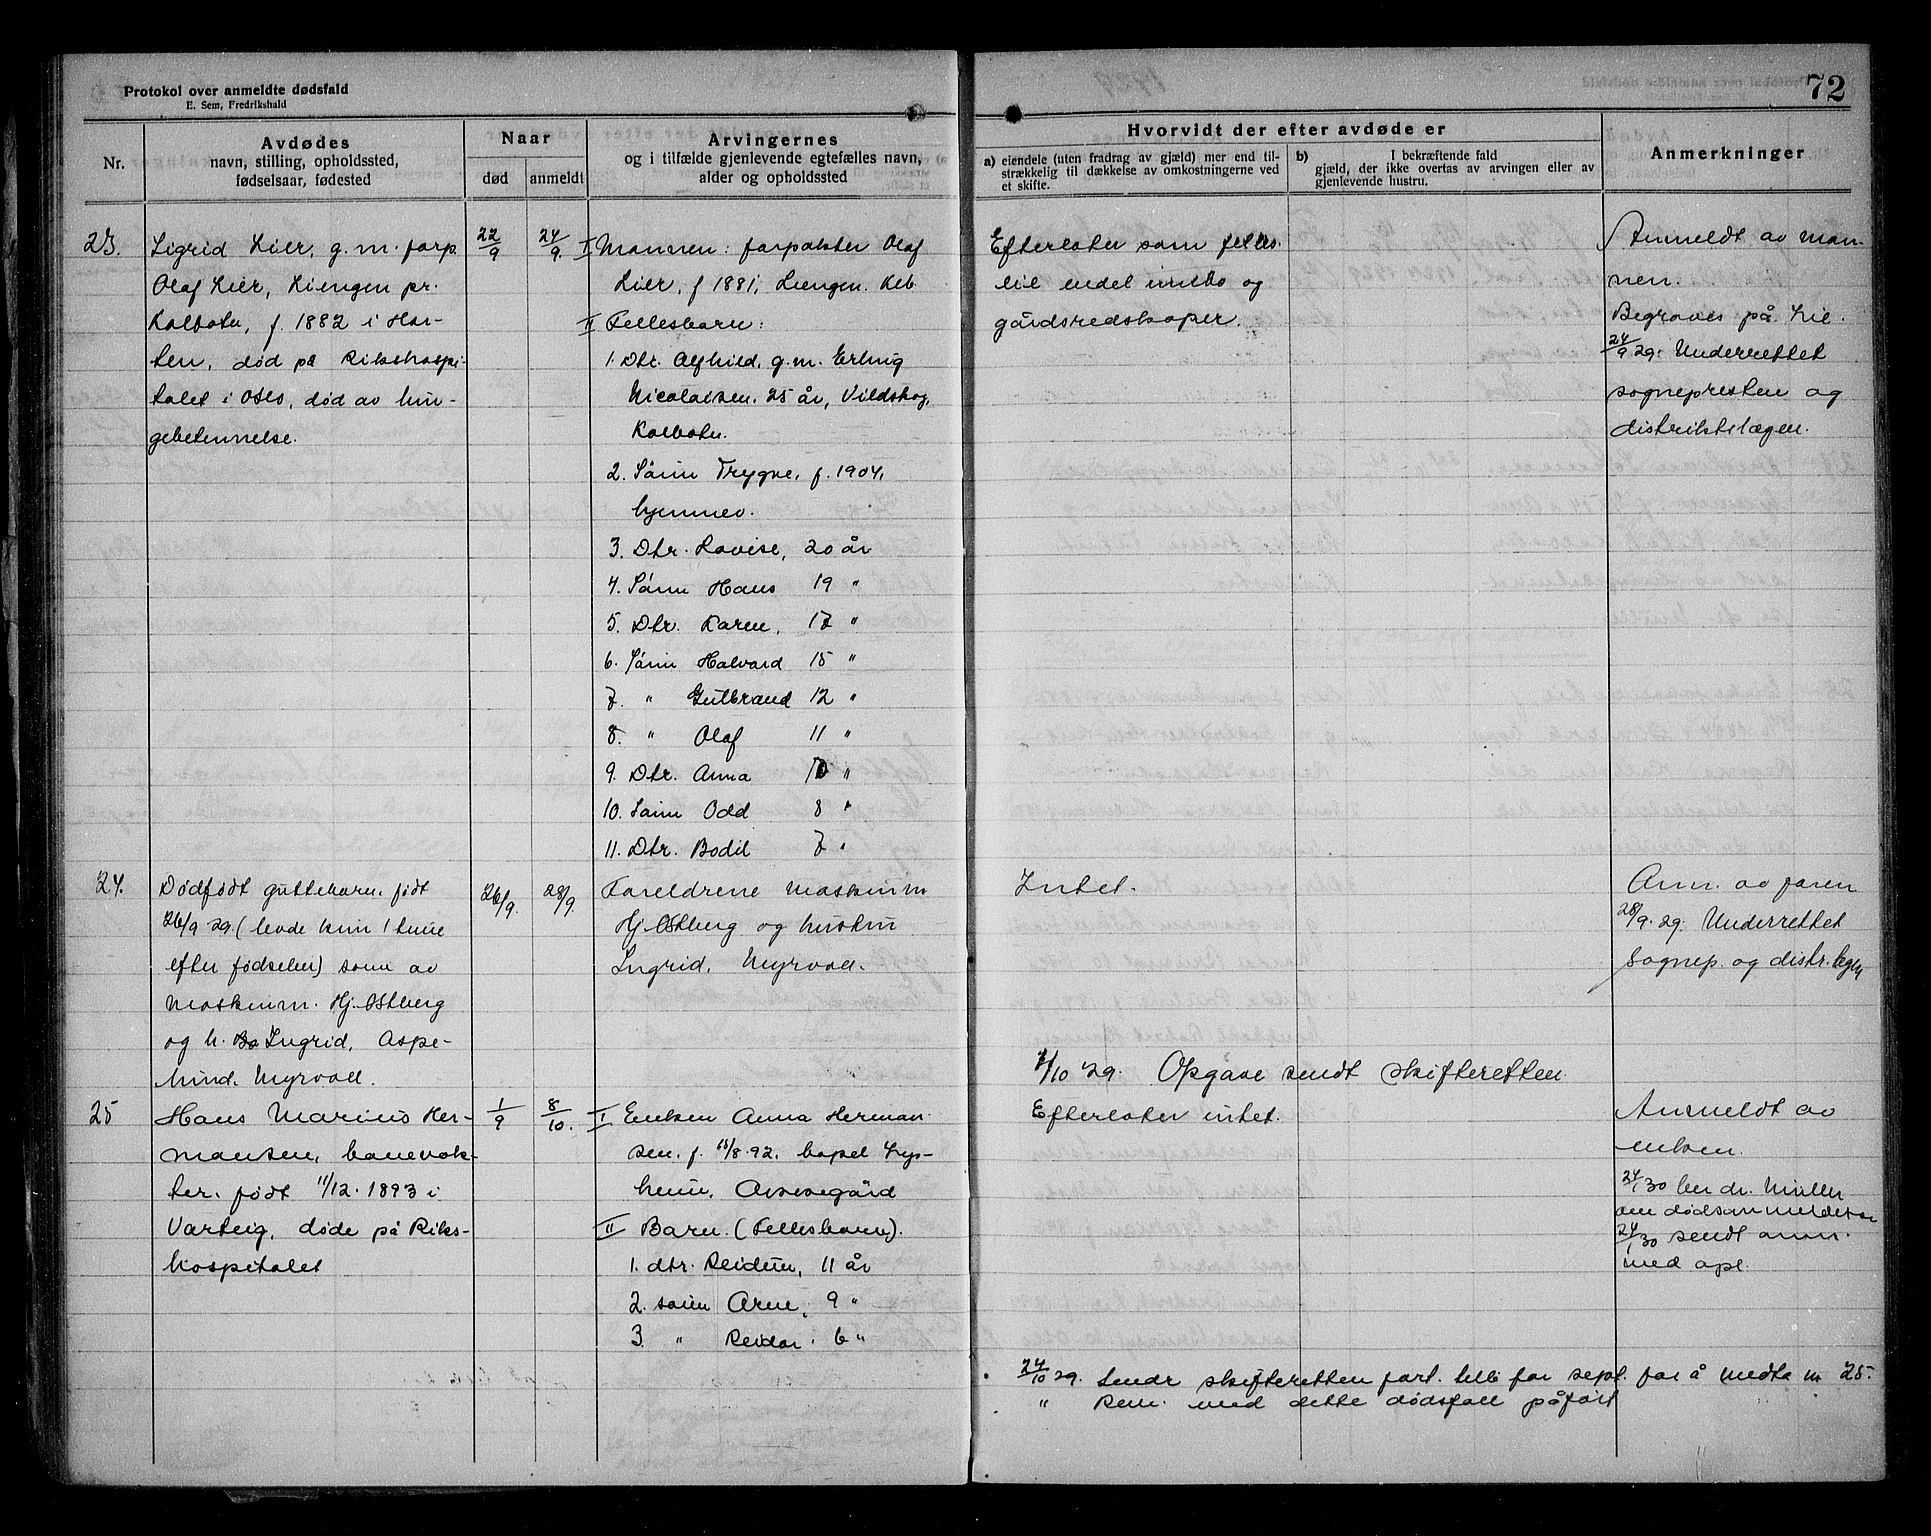 Protokol over anmeldte dødsfald
E. Sem, Fredrikshald
72
Nr.
Avdødes
navn, stilling, opholdssted,
fødselsaar, fødested
Naar
død
anmeldt
Arvingernes
og i tilfælde gjenlevende egtefælles navn,
alder og opholdssted
Hvorvidt der efter avdøde er
a) eiendele (uten fradrag av gjæld) mer end til-
strækkelig til dækkelse av omkostningerne ved
et skifte.
b) I bekræftende fald
gjæld, der ikke overtas av arvingen eller av
gjenlevende hustru.
Anmerkninger
23.
Sigrid Lier, g.m. forp.
Olaf Lier, Liengen pr.
Kolbotn, f. 1882 i Hol-
ten, død på Rikshospi-
talet i Oslo, død av lun-
gebetennelse.
22/9
24/9.
I Mannen: forpakter Olaf
Lier, f 1881, Liengen. Kolb.
II Fellesbarn:
1. Dtr. Alfhild, g.m. Erling
Nicolaisen. 25 år, Vildskog,
Kolbotn.
2. Sønn Trygve, f. 1904,
hjemmev.
3. Dtr. Lovise, 20 år
4. Sønn Hans 19 "
5. Dtr. Karen, 17 "
6. Sønn Halvard 15 "
7. " Gulbrand 12 "
8. " Olaf 11 "
9. Dtr. Anna 10 "
10. Sønn Odd 8 "
11. Dtr. Bodil 7 "
Efterlater som felles-
eie endel innbo og
gårdsredskaper.
Anmeldt av man-
nen.
Begraves på
24/9 29. Underrettet
sognepresten og
distriktslægen.
24.
Dødfødt guttebarn. født
26/9 29. (levde kun 1 time
efter fødselen) sønn av
maskinm. Hj. Østberg
og h. Ingrid, Aspe-
lund. Myrvoll.
26/9.
28/9.
Foreldrene maskinm
Hj. Østberg og hustru
Ingrid, Myrvoll.
Intet.
Anm. av faren
28/9. 29. Underrettet
Sognep. og distr. legen
1/10 29. Opgave sendt skifteretten.
25
Hans Marius Her-
mansen, banevok-
ter. født 11/12. 1893 i
Varteig, døde på Riks-
hospitalet
1/9
8/10.
I Enken Anna Herman-
sen. f. 15/8. 92. bopel Lys-
heim,
II Barn. (Fellesbarn).
1. dtr. Reidun, 11 år
2. sønn Arne, 9 "
3. " Reidar. 6 "
Efterlater intet.
Anmeldt av
enken.
24/1 30 ber dr. Müller
om dødsanmeldelse
24/1 30 sendt anm.
med opl.
24/10 29. Sendt skifteretten fort. for sept. for å medta nr 25.
" Rem. med dette dødsfall påført